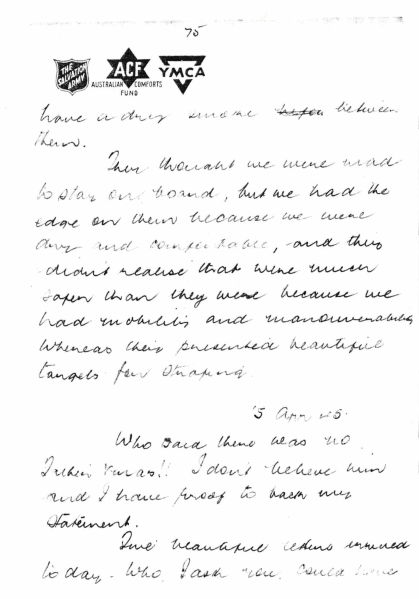 75
THE SALVATION ARMY
ACF
AUSTRALIAN COMFORTS FUND
YMCA
have a dry smoke between
them.
They thought we were mad
to stay on board, but we had the
edge on them because we were
dry and comfortable, and they
didn't realise that were much
safer than they were because we
had mobility and manouverability
Whereas they presented beautiful
targets for straping
5 Apr 45.
Who said there was no
Father Xmas!! I don't believe him
and I have proof to back my
statement.
Five beautiful letters arrived
to day. Who, I ask you, could have